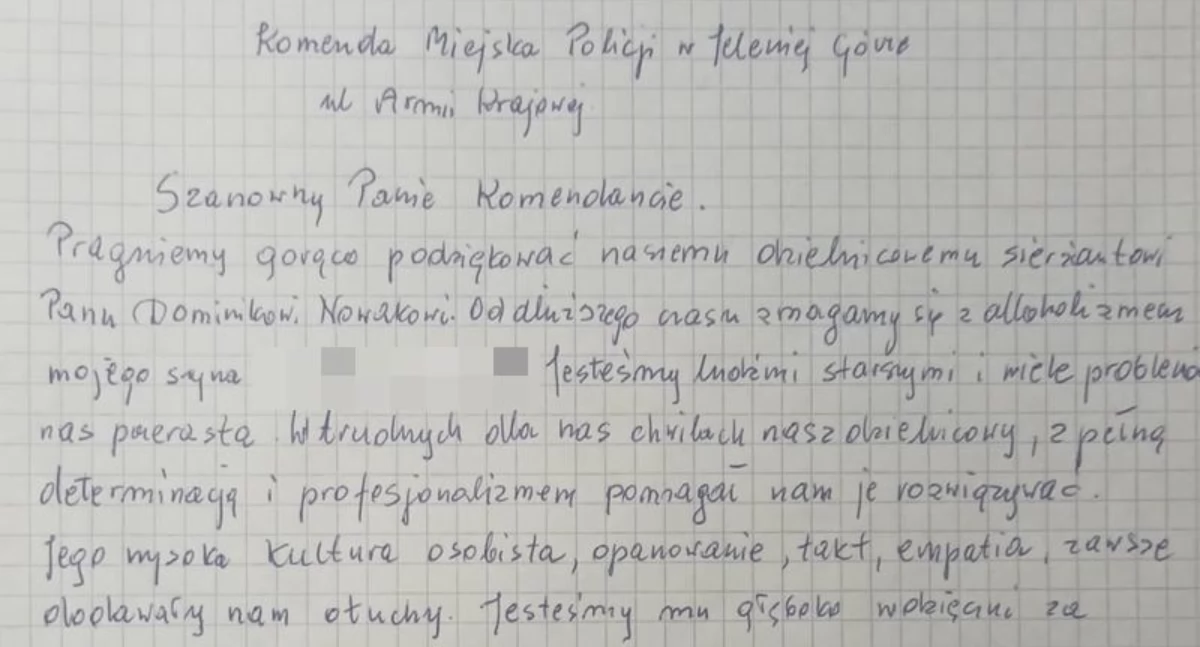 Komenda Miejska Policji w Jeleniej Górze
ul Armii Krajowej
Szanowny Panie Komendancie.
Pragniemy gorąco podziękować naszemu dzielnicowemu sierżantowi
Panu Dominikowi Nowakowi. Od dłuższego czasu zmagamy się z alkoholizmem
mojego syna Jesteśmy ludźmi starszymi i wiele problemó
nas przerasta. W trudnych dla nas chwilach nasz dzielnicowy, z pełną
determinacją i profesjonalizmem pomagał nam je rozwiązywać.
Jego wysoka kultura osobista, opanowanie, takt, empatia, zawsze
dodawały nam otuchy. Jesteśmy mu głęboko wdzięczni za